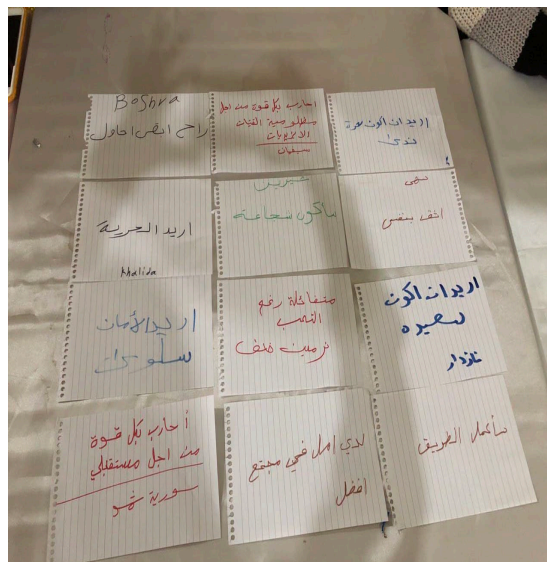 Boshra
راح ابقى احاول
احارب بكل قوة من اجل
مظلومية الفتيات
الايزيديات
اريد ان اكون حرة
اريد الحرية
Khalida
شيرين
ساكون شجاعة
اثق بنفسي
اريد الأمان
سلوى
متفائلة رغم
التعب
نرمين خلف
اريد ان اكون
سعيده
نازدار
أحارب بكل قوة
من اجل مستقبلي
سورية
لدي امل في مجتمع
افضل
سأكمل الطريق